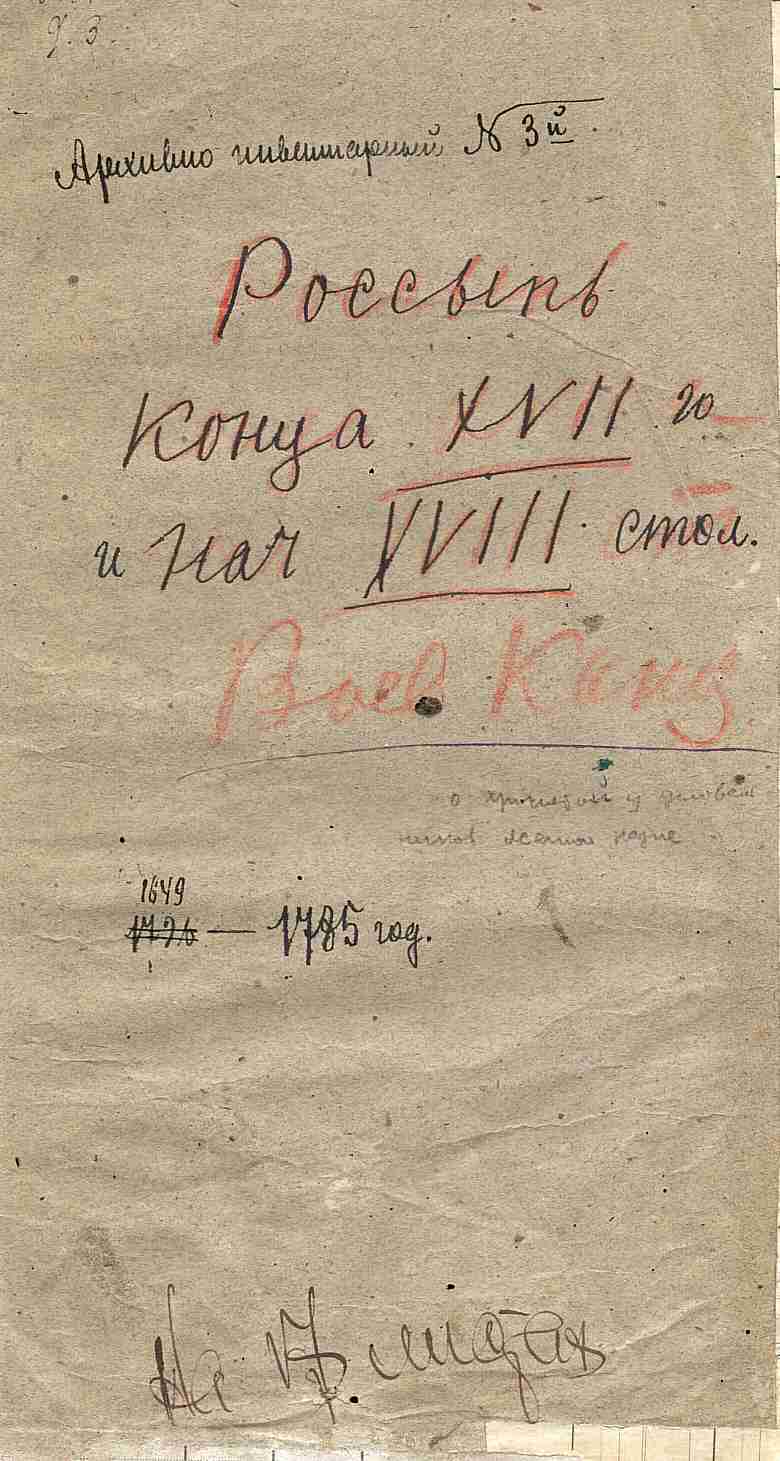 Архивно инвентарный № 3й.
Россыпь
Конца XVII го
и нач XVIII стол.
Воев Канц
1649
1726 — 1785 год.
На листах